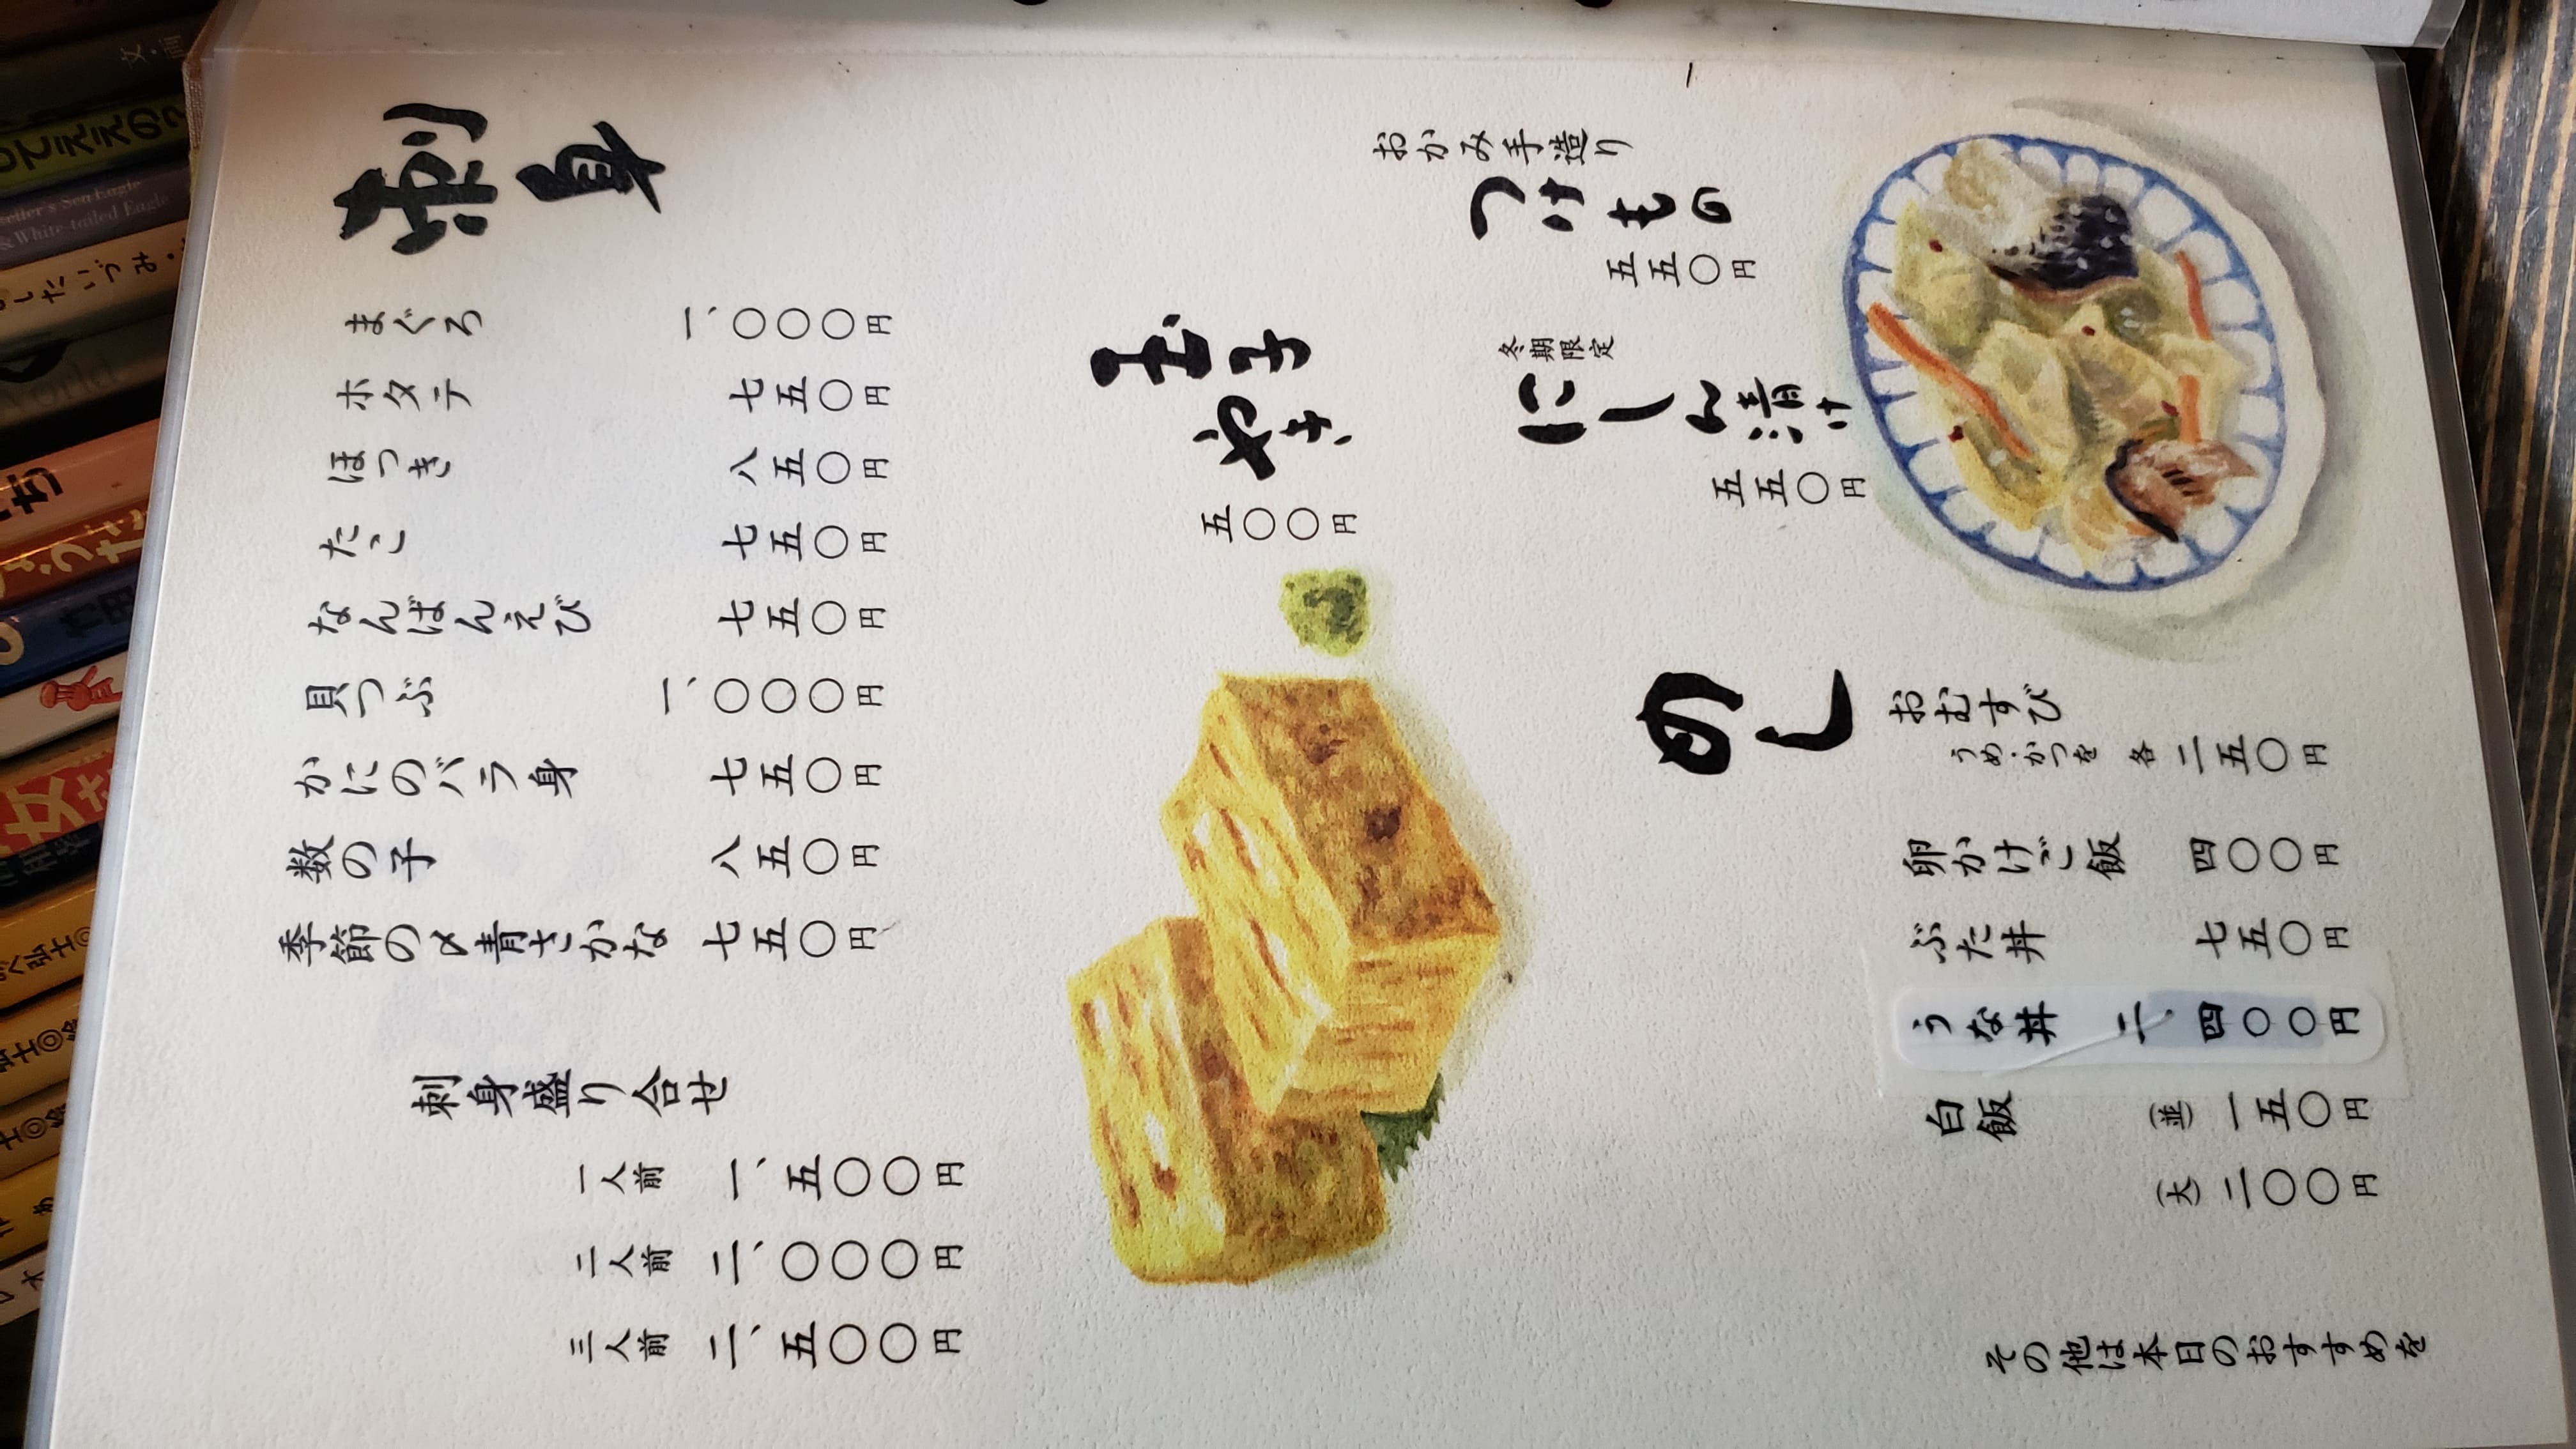 刺身
まぐろ 一、〇〇〇円
ホタテ 七五〇円
ほっき 八五〇円
たこ 七五〇円
なんばんえび 七五〇円
貝つぶ 一、〇〇〇円
かにのバラ身 七五〇円
数の子 八五〇円
季節の〆青さかな 七五〇円
刺身盛り合せ
一人前 一、五〇〇円
二人前 二、〇〇〇円
三人前 二、五〇〇円
玉子
やき
五〇〇円
おかみ手造り
つけもの
五五〇円
冬期限定
にしん漬け
五五〇円
めし
おむすび
うめ・かつを 各 二五〇円
卵かけご飯 四〇〇円
ぶた丼 七五〇円
うな丼 二、四〇〇円
白飯 (並) 一五〇円
(大) 二〇〇円
その他は本日のおすすめを
文・画
eller's Sea Eagle
& White-tailed Eagle